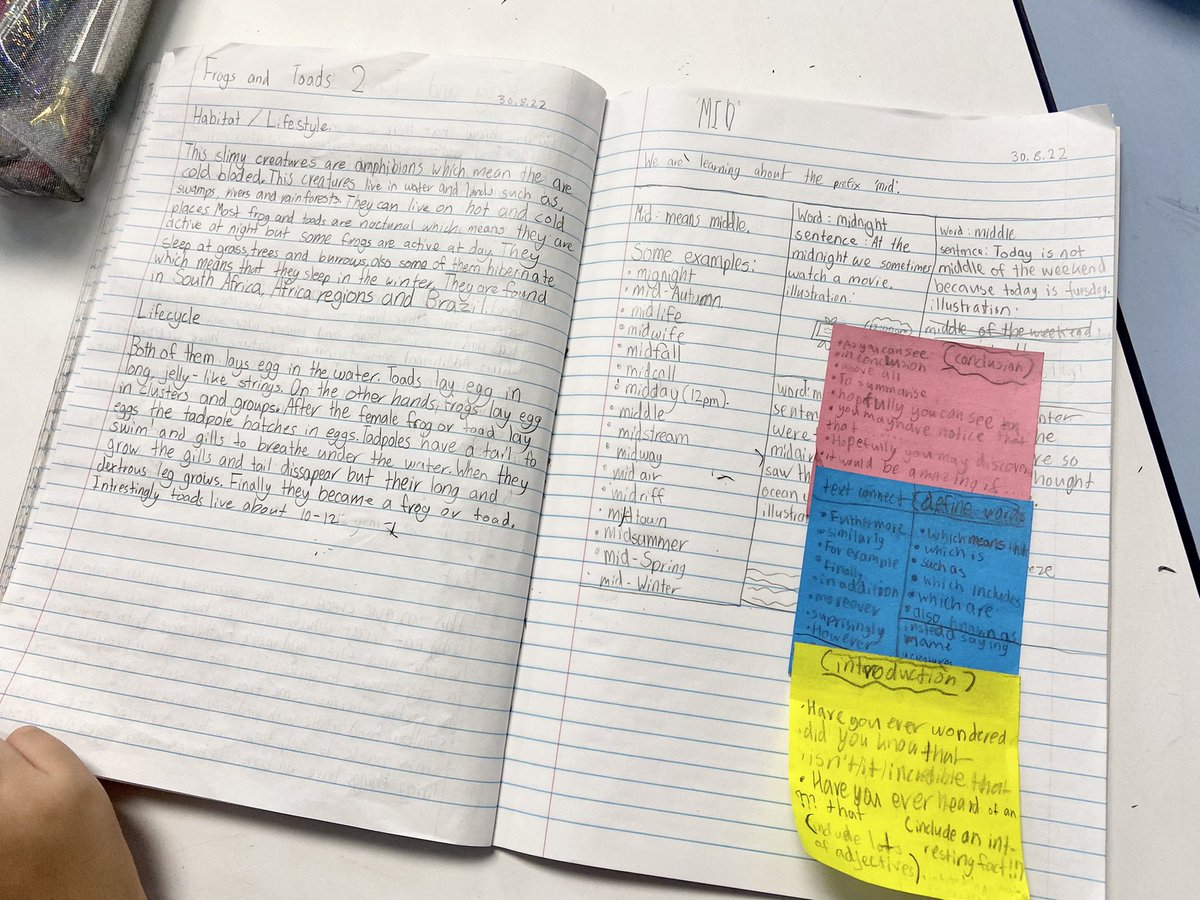 Frogs and Toads 2
30.8.22
Habitat / Lifestyle
This slimy creatures are amphibians which mean the are
cold bloded. This creatures live in water and lands such as,
swamps, rivers and rainforests. They can live on hot and cold
places. Most frog and toads are noctunal which means they are
active at night but some frogs are active at day. They
sleep at grass, trees and burrows. also some of them hibernate
which means that they sleep in the winter. They are found
in South Africa, Africa regions and Brazil.
Lifecycle
Both of them lays egg in the water. Toads lay egg in
long, jelly-like strings. On the other hands, Frogs lay egg
in clusters and groups. After the female frog or toad lay
eggs the tadpole hatches in eggs. Tadpoles have a tail to
swim and gills to breathe under the water. When they
grow the gills and tail dissapear but their long and
dextrous leg grows. Finally they became a frog or toad.
Intrestingly toads live about 10-12
'MID'
30.8.22
We are learning about the prefix 'mid'.
Mid: means middle.
Some examples:
• mignight
• mid-Autumn
• midlife
• midwife
• midfall
• midcall
• midday (12pm).
• middle
• midstream
• midway
• mid air
• midriff
• midtown
• midsummer
• mid-Spring
• mid-Winter
Word: midnight
sentence: At the
midnight we sometimes
watch a movie.
illustration:
word: middle
sentence: Today is not
middle of the weekend
because today is tuesday.
illustration:
middle of the weekend
word: m
senten
were
midair
saw th
ocean
illustrat
the
are so
thought
conclusion
• As you can see:
• in conclusion
• above all
• To summarise
• hopefully you can see by
• you may have notice that
that
• Hopefully you may discover
it would be amazing if...
text connect
• Furthermore
• similarly
• For example
• finally
• in addition
• moreover
• suprisingly
• However
define words
• which means that
• which is
• such as
• which includes
• which are
• also known as
instead saying
(introduction)
• Have you ever wondered
• did you know that
isn't/it/incredible that
• Have you ever heard of an
that
(include an int-
resting fact!!)
(include lots
of adjectives)